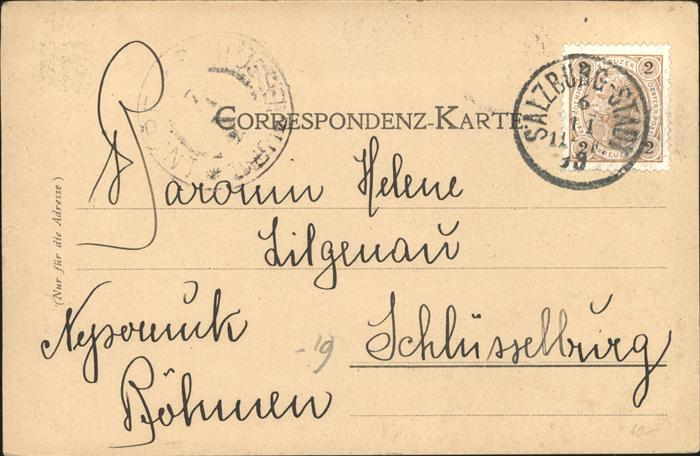 CORRESPONDENZ-KARTE
SALZBURG-STADT
6
11
2 KREUZER 2
2 2
(Nur für die Adresse)
Baronin Helene
Lilgenau
Schlüsselburg
Nepomuk
Böhmen
-19
10-